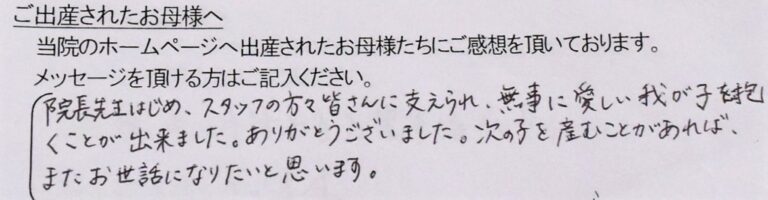 ご出産されたお母様へ
当院のホームページへ出産されたお母様たちにご感想を頂いております。
メッセージを頂ける方はご記入ください。
院長先生はじめ、スタッフの方々皆さんに支えられ、無事に愛しい我が子を抱
くことが出来ました。ありがとうございました。次の子を産むことがあれば、
またお世話になりたいと思います。